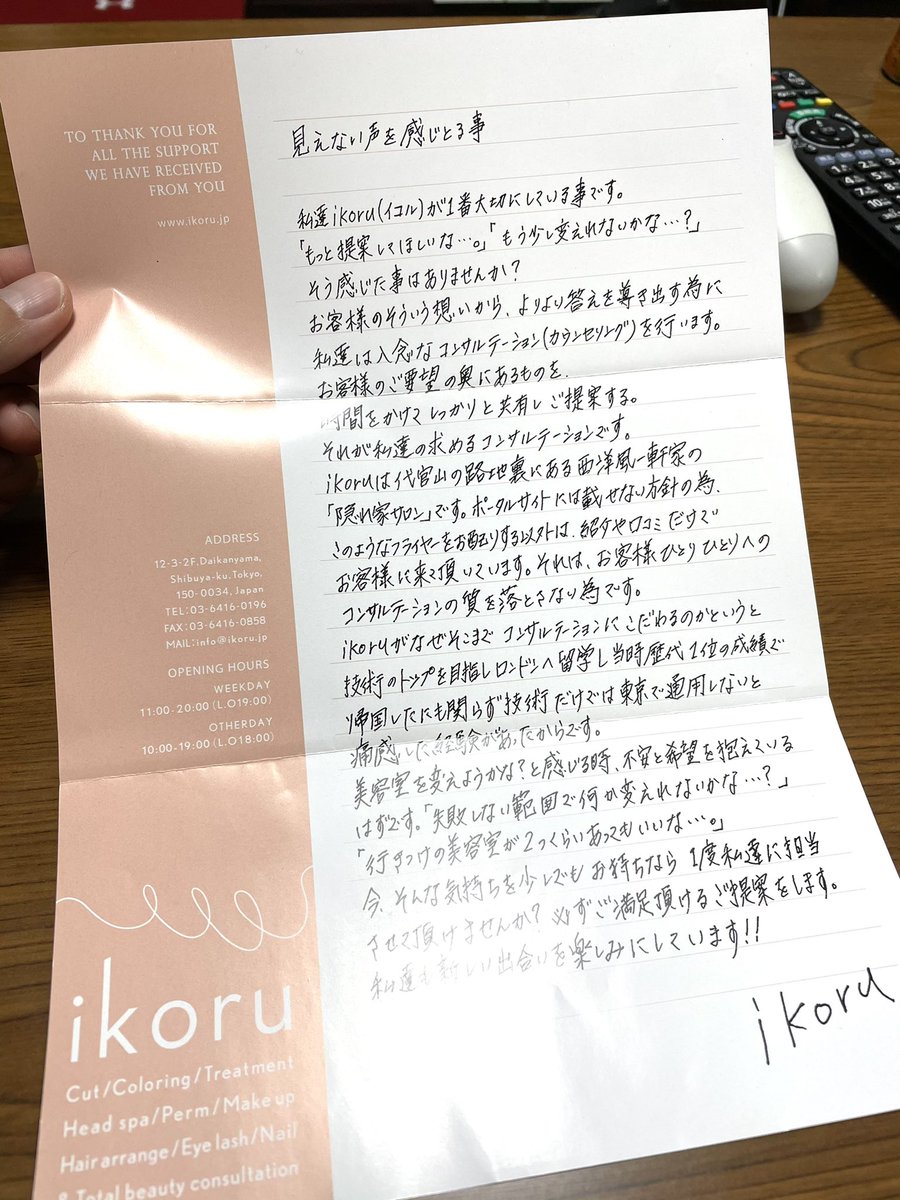 TO THANK YOU FOR
ALL THE SUPPORT
WE HAVE RECEIVED
FROM YOU
www.ikoru.jp
ADDRESS
12-3-2F.Daikanyama,
Shibuya-ku.Tokyo,
150-0034, Japan
TEL:03-6416-0196
FAX:03-6416-0858
MAIL:info@ikoru.jp
OPENING HOURS
WEEKDAY
11:00-20:00(L.O19:00)
OTHERDAY
10:00-19:00(L.O18:00)
ikoru
Cut/Coloring/Treatment
Head spa/Perm/Make up
Hair arrange/Eye lash/Nail
& Total beauty consultation
見えない声を感じとる事
私達ikoru(イコル)が1番大切にしている事です。
「もっと提案してほしいな…。」「もう少し変えれないかな…?」
そう感じた事はありませんか?
お客様のそういう想いから、よりより答えを導き出す為に
私達は入念なコンサルテーション(カウンセリング)を行います。
お客様のご要望の奥にあるものを、
時間をかけてしっかりと共有しご提案する。
それが私達の求めるコンサルテーションです。
ikoruは代官山の路地裏にある西洋風一軒家の
「隠れ家サロン」です。ポータルサイトには載せない方針の為、
このようなフライヤーをお配りする以外は、紹介や口コミだけで
お客様に来て頂いています。それは、お客様ひとりひとりへの
コンサルテーションの質を落とさない為です。
ikoruがなぜそこまでコンサルテーションにこだわるのかというと
技術のトップを目指しロンドンへ留学し当時歴代1位の成績で
帰国したにも関らず技術だけでは東京で通用しないと
痛感した経験があったからです。
美容室を変えようかな?と感じる時、不安と希望を抱えている
はずです。「失敗しない範囲で何か変えれないかな…?」
「行きつけの美容室が2つくらいあってもいいな…。」
今、そんな気持ちを少しでもお持ちなら1度私達に担当
させて頂けませんか? 必ずご満足頂けるご提案をします。
私達も新しい出合いを楽しみにしています!!
ikoru